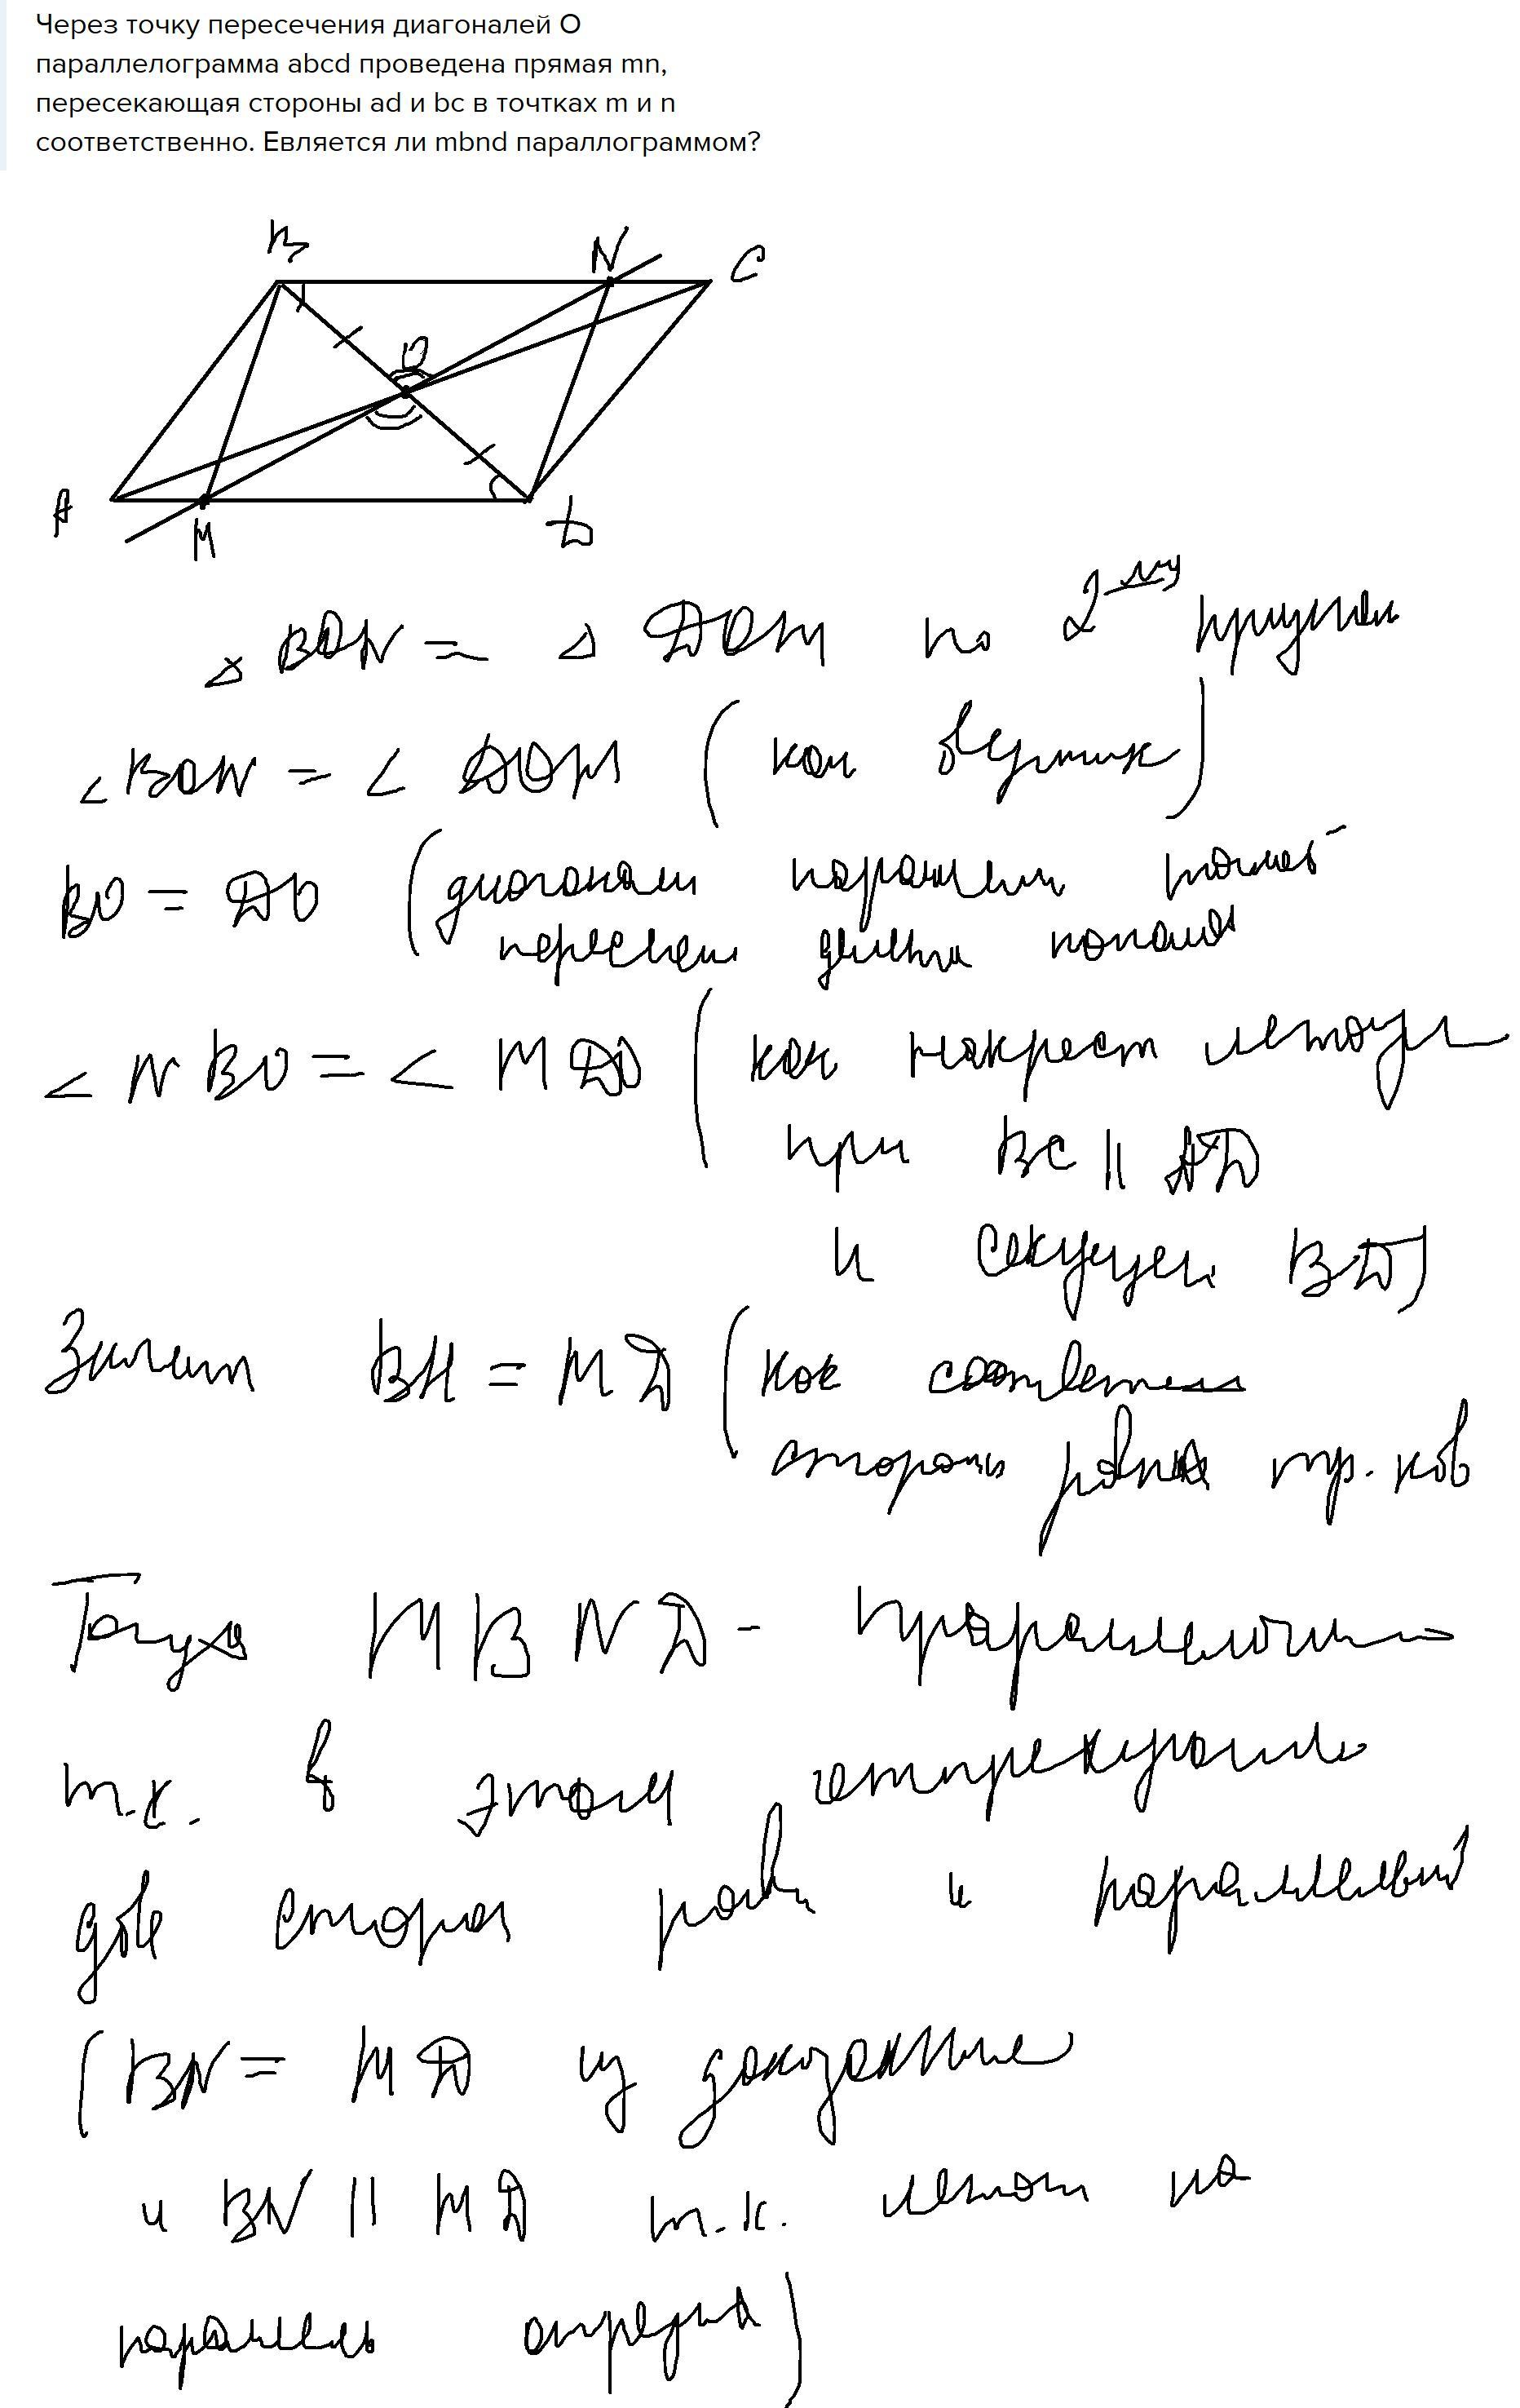 Через точку пересечения диагоналей О
параллелограмма abcd проведена прямая mn,
пересекающая стороны ad и bc в точтках m и n
соответственно. Евляется ли mbnd параллограммом?
B N C
O
A M D
△ BON = △ DOM по 2-му
∠ BON = ∠ DOM (как вертик)
BO = DO (диагонали
пересечен делятся пополам
∠ NBO = ∠ MDO (как накрест лежащ
при BC || AD
и секущей BD)
Значит BN = MD (как соответств
стороны равных тр. ков
Тогда MBND -
т.к. в этом
две сторон равн и параллельны
(BN = MD из
и BN || MD т.к. лежат на
)